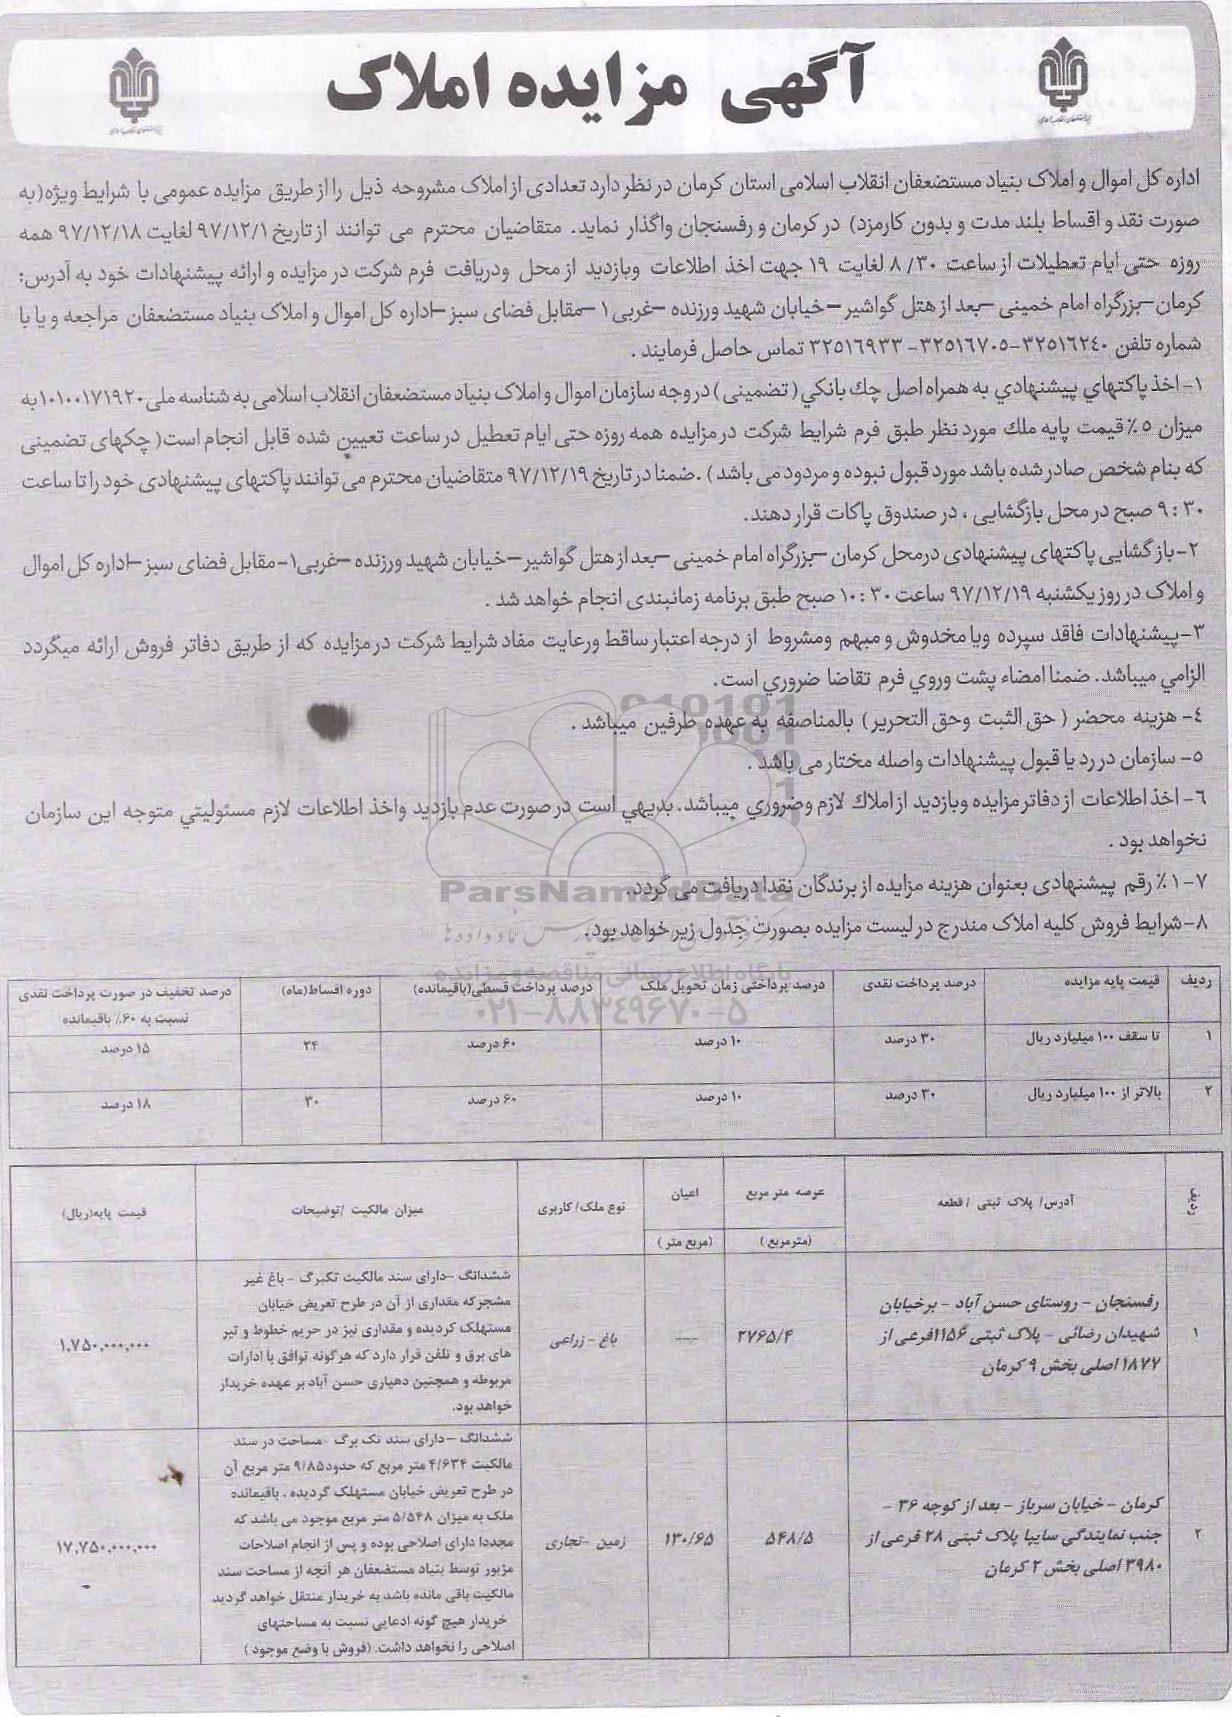 آگهی مزایده املاک
اداره کل اموال و املاک بنیاد مستضعفان انقلاب اسلامی استان کرمان در نظر دارد تعدادی از املاک مشروحه ذیل را از طریق مزایده عمومی با شرایط ویژه(به
صورت نقد و اقساط بلند مدت و بدون کارمزد) در کرمان و رفسنجان واگذار نماید. متقاضیان محترم می توانند از تاریخ ۹۷/۱۲/۱ لغایت ۹۷/۱۲/۱۸ همه
روزه حتی ایام تعطیلات از ساعت ۸/۳۰ لغایت ۱۹ جهت اخذ اطلاعات وبازدید از محل ودریافت فرم شرکت در مزایده و ارائه پیشنهادات خود به آدرس:
کرمان-بزرگراه امام خمینی -بعد از هتل گواشیر -خیابان شهید ورزنده -غربی۱ -مقابل فضای سبز -اداره کل اموال و املاک بنیاد مستضعفان مراجعه و یا با
شماره تلفن ۳۲۵۱۶۲۴۰-۳۲۵۱۶۷۰۵-۳۲۵۱۶۹۳۳ تماس حاصل فرمایند .
۱- اخذ پاکتهاي پیشنهادي به همراه اصل چك بانکي ( تضمینی ) در وجه سازمان اموال و املاک بنیاد مستضعفان انقلاب اسلامی به شناسه ملی ۱۰۱۰۰۱۷۱۹۲۰به
میزان ۵٪ قیمت پایه ملك مورد نظر طبق فرم شرایط شرکت در مزایده همه روزه حتی ایام تعطیل در ساعت تعیین شده قابل انجام است( چکهای تضمینی
که بنام شخص صادر شده باشد مورد قبول نبوده و مردود می باشد ) .ضمنا در تاریخ ۹۷/۱۲/۱۹ متقاضیان محترم می توانند پاکتهای پیشنهادی خود را تا ساعت
۹:۳۰ صبح در محل بازگشایی ، در صندوق پاکات قرار دهند.
۲-بازگشایی پاکتهای پیشنهادی درمحل کرمان -بزرگراه امام خمینی -بعد از هتل گواشیر -خیابان شهید ورزنده -غربی۱-مقابل فضای سبز -اداره کل اموال
و املاک در روز یکشنبه ۹۷/۱۲/۱۹ ساعت ۱۰:۳۰ صبح طبق برنامه زمانبندی انجام خواهد شد .
۳-پیشنهادات فاقد سپرده ویا مخدوش و مبهم ومشروط از درجه اعتبار ساقط ورعایت مفاد شرایط شرکت در مزایده که از طریق دفاتر فروش ارائه میگردد
الزامي میباشد. ضمنا امضاء پشت وروي فرم تقاضا ضروري است.
۴- هزینه محضر ( حق الثبت وحق التحریر ) بالمناصفه به عهده طرفین میباشد .
۵- سازمان در رد یا قبول پیشنهادات واصله مختار می باشد .
۶- اخذ اطلاعات از دفاتر مزایده وبازدید از املاك لازم وضروري میباشد. بدیهي است در صورت عدم بازدید واخذ اطلاعات لازم مسئولیتي متوجه این سازمان
نخواهد بود .
۷-۱٪ رقم پیشنهادی بعنوان هزینه مزایده از برندگان نقدا دریافت می گردد.
۸-شرایط فروش کلیه املاک مندرج در لیست مزایده بصورت جدول زیر خواهد بود.
ParsNamadData
پایگاه اطلاع رسانی مناقصه و مزایده
۰۲۱-۸۸۳۴۹۶۷۰-۵
ردیف قیمت پایه مزایده درصد پرداخت نقدی درصد پرداختی زمان تحویل ملک درصد پرداخت قسطی(باقیمانده) دوره اقساط(ماه) درصد تخفیف در صورت پرداخت نقدی
نسبت به ۶۰٪ باقیمانده
۱ تا سقف ۱۰۰ میلیارد ریال ۳۰ درصد ۱۰ درصد ۶۰ درصد ۲۴ ۱۵ درصد
۲ بالاتر از ۱۰۰ میلیارد ریال ۳۰ درصد ۱۰ درصد ۶۰ درصد ۳۰ ۱۸ درصد
ردیف آدرس/ پلاک ثبتی / قطعه عرصه متر مربع اعیان نوع ملک/ کاربری میزان مالکیت /توضیحات قیمت پایه(ریال)
(مترمربع) (مربع متر)
۱ رفسنجان - روستای حسن آباد - برخیابان
شهیدان رضائی - پلاک ثبتی ۱۱۵۶فرعی از
۱۸۷۷ اصلی بخش ۹ کرمان
۲۷۶۵/۴ ---- باغ - زراعی
ششدانگ -دارای سند مالکیت تکبرگ - باغ غیر
مشجر که مقداری از آن در طرح تعریض خیابان
مستهلک گردیده و مقداری نیز در حریم خطوط و تیر
های برق و تلفن قرار دارد که هرگونه توافق با ادارات
مربوطه و همچنین دهیاری حسن آباد بر عهده خریدار
خواهد بود.
۱,۷۵۰,۰۰۰,۰۰۰
۲ کرمان - خیابان سرباز - بعد از کوچه ۳۶ -
جنب نمایندگی سایپا پلاک ثبتی ۲۸ فرعی از
۳۹۸۰ اصلی بخش ۲ کرمان
۵۴۸/۵ ۱۳۰/۶۵ زمین -تجاری
ششدانگ -دارای سند تک برگ -مساحت در سند
مالکیت ۴/۶۳۴ متر مربع که حدود۹/۸۵ متر مربع آن
در طرح تعریض خیابان مستهلک گردیده . باقیمانده
ملک به میزان ۵/۵۴۸ متر مربع موجود می باشد که
مجددا دارای اصلاحی بوده و پس از انجام اصلاحات
مزبور توسط بنیاد مستضعفان هر آنچه از مساحت سند
مالکیت باقی مانده باشد به خریدار منتقل خواهد گردید
خریدار هیچ گونه ادعایی نسبت به مساحتهای
اصلاحی را نخواهد داشت. (فروش با وضع موجود )
۱۷,۷۵۰,۰۰۰,۰۰۰